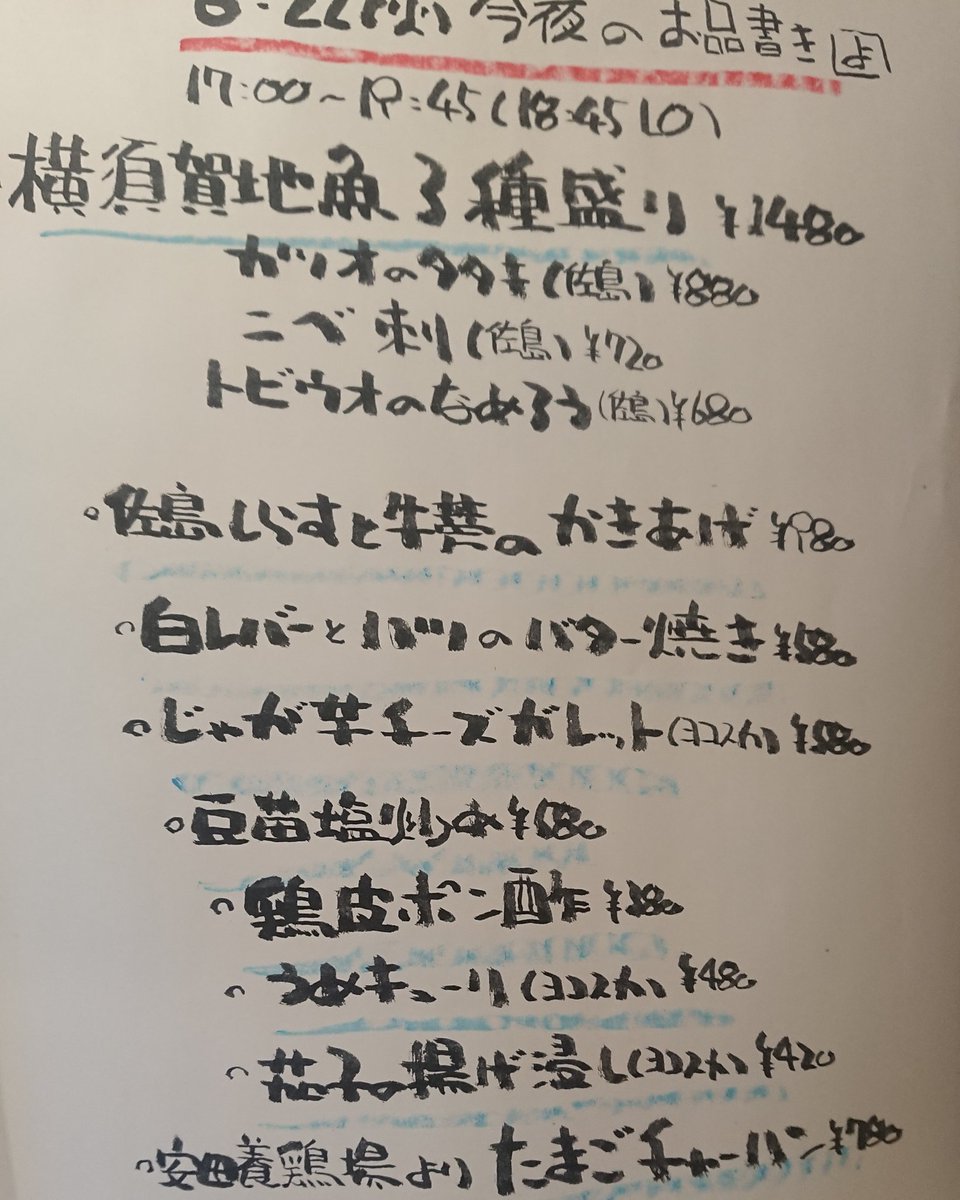 6・22(火) 今夜のお品書き よ
17:00〜19:45(18:45LO)
横須賀地魚3種盛り ¥1480
カツオのタタキ(佐島) ¥880
ニベ刺(佐島) ¥720
トビウオのなめろう(佐島) ¥680
佐島しらすと牛蒡のかきあげ ¥980
白レバーとハツのバター焼き ¥580
じゃが芋チーズガレット(ヨコスカ) ¥580
豆苗塩炒め ¥580
鶏皮ポン酢 ¥380
うめきゅーり(ヨコスカ) ¥480
茄子の揚げ浸し(ヨコスカ) ¥420
安田養鶏場より たまごチャーハン ¥780